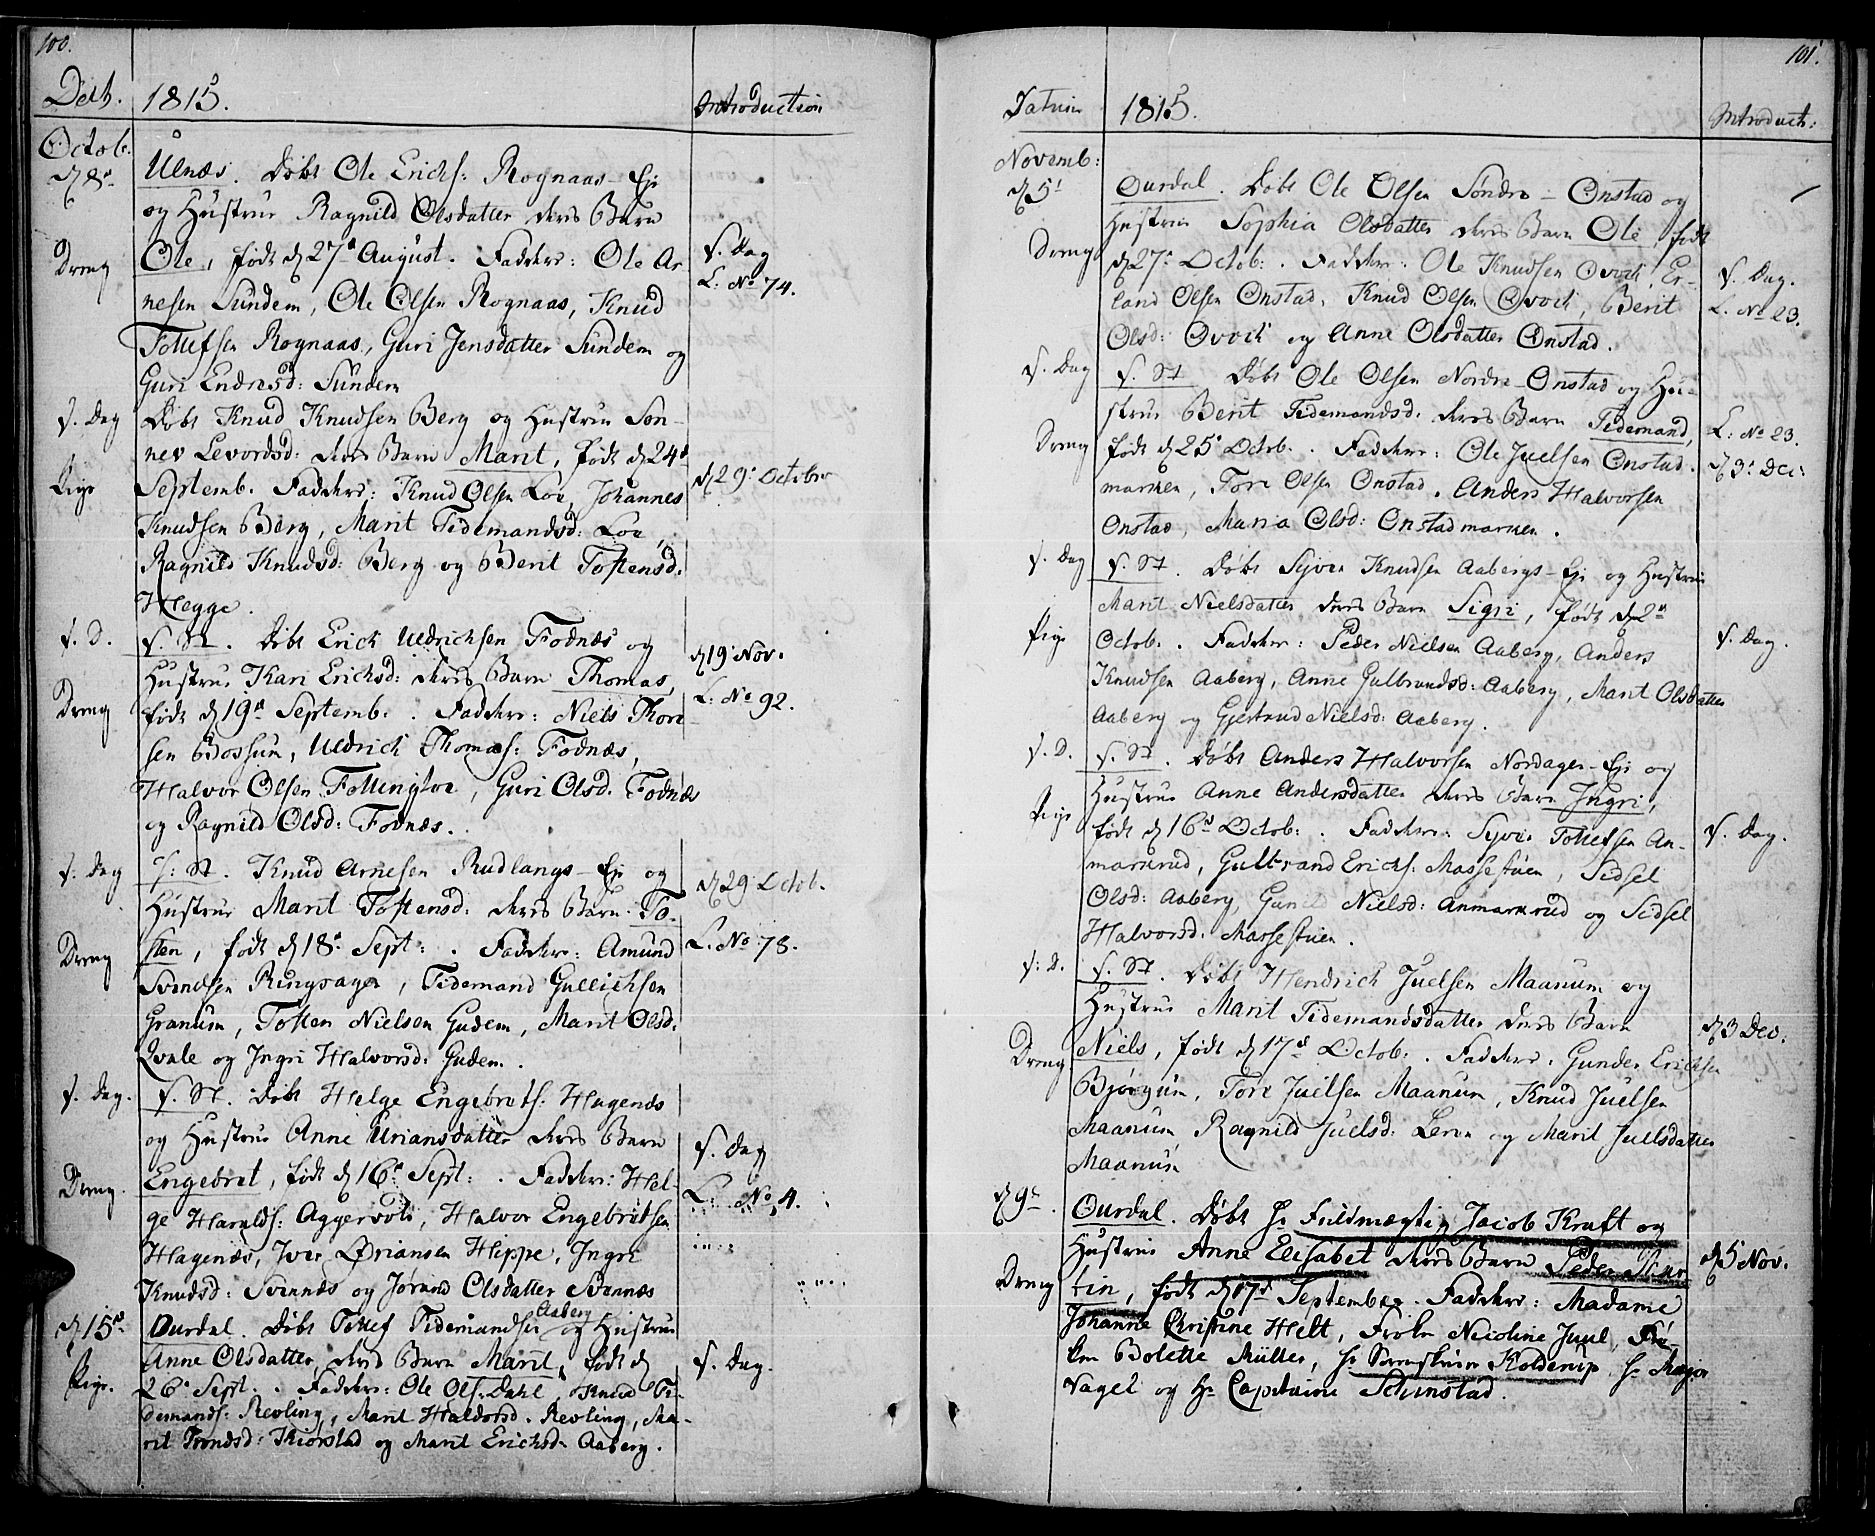 100.
Dath. 1815. Introduction
Octob.
d 8de Ulnæs. Døbt Ole Erichs: Rognaas-Eje
og Hustrue Ragnild Olsdatter deres Barn
Dreng Ole, født d 27de August. Faddere: Ole Ar
s. Dag
L. No 74.
nesen Sundem, Ole Olsen Rognaas, Knud
Tollefsen Rognaas, Guri Jensdatter Sundem og
Guri Endresd: Sundem
s. Dag Døbt Knud Knudsen Berg og Hustrue Søn-
nev Levordsd: deres Barn Marit, født d 24de
Pige Septemb. Faddere: Knud Olsen Loe, Johannes
d 29de Octobr
Knudsen Berg, Marit Tidemandsd: Loe,
Ragnild Knudsd: Berg og Berit Tostensd.
Hegge.
s. D. s. St. Døbt Erick Uldrichsen Fodnæs og
d 19de Nov.
Hustrue Kari Ericksd: deres Barn Thomas,
L: No 92.
Dreng født d 19de Septemb. Faddere: Niels Thore
sen Bossum, Uldrich Thomæs: Fodnæs,
Halvor Olsen Follingloe, Guri Olsd. Fodnæs
og Ragnild Olsd: Fodnæs.
s. Dag s. St. Knud Arnesen Rudlangs-Eje og
d 29 Octob.
Hustrue Marit Tostensd: deres Barn To-
Dreng sten, født d 18de Sept: Faddere: Amund
L. No 78.
Svendsen Ringsager, Tidemand Gullichsen
Granum, Tosten Nielsen Gudem, Marit Olsd.
Qvale og Ingri Halvorsd: Gudem.
s. Dag. s. St. Døbt Helge Engebrets: Hagenæs
og Hustrue Anne Uriansdatter deres Barn
s. Dag
Dreng. Engebret, født d 16de Sept: Faddere: Hel-
L: No 4.
ge Haralds: Aggervold, Halvor Engebretsen
Hagenæs, Iver Øriansen Hippe, Ingri
Knudsd: Svennæs og Jørand Olsdatter Svennæs
d 15de Ourdal. Døbt Tollef Tidemandsen Aaberg og Hustrue
Anne Olsdatter deres Barn Marit, født d
s. Dag.
Pige. 26de Sept. Faddere: Ole Ols: Dahl, Knud Ti-
demands: Revling, Marit Haldorsd. Revling, Ma-
rit Trondsd: Thiorstad og Marit Ericksd. Aaberg.
101.
Datum 1815. Introduct:
Novemb:
d 5te Ourdal. Døbt Ole Olsen Søndre-Onstad og
Hustrue Sophia Olsdatter deres Barn Ole født
Dreng d 27de Octob: Faddere: Ole Knudsen Qvock, Er-
s. Dag.
land Olsen Onstad, Knud Olsen Qvock, Berit
L. No 23.
Olsd: Qvock og Anne Olsdatter Onstad.
s. Dag s. St Døbt Ole Olsen Nordre-Onstad og Hu-
strue Berit Tidemandsd. deres Barn Tidemand,
L: No 23.
Dreng født d 25de Octob. Faddere: Ole Juelsen Onstad-
d 3de Dec:
marken, Tore Olsen Onstad, Anders Halvorsen
Onstad, Maria Olsd: Onstadmarken.
s. Dag s. St. Døbt Syver Knudsen Aabergs-Eje og Hustrue
Marit Nielsdatter deres Barn Sigri, født d 2de
Pige Octob. Faddere: Peder Nielsen Aaberg, Anders
s. Dag.
Knudsen Aaberg, Anne Gulbrandsd: Aaberg, Marit Olsdatter
Aaberg og Gjertrud Nielsd: Aaberg.
s. D. s. St. Døbt Anders Halvorsen Nordager-Eje og
Hustrue Anne Andersdatter deres Barn Ingri,
Pige født d 16de Octob: Faddere: Syver Tollefsen An-
s. Dag.
markrud, Gulbrand Ericks. Massestuen, Sidsel
Olsd: Aaberg Gunild Nielsd: Anmarkrud og Sidsel
Halvorsd. Massestuen.
s: D. s. St. Døbt Hendrich Juelsen Maanum og
Hustrue Marit Tidemandsdatter deres Barn
d 3 Dec.
Dreng Niels, født d 17de Octob: Faddere: Gunder Ericksen
Bjørgum, Tore Juelsen Maanum, Knud Juelsen
Maanum, Ragnild Juelsd: Leren og Marit Juelsdatter
Maanum
d 9de. Ourdal. Døbt Hr Fuldmægtig Jacob Kraft og
Hustrue Anne Elisabet deres Barn Peder Mar
d 5 Nov.
Dreng tin, født d 17de September. Faddere: Madame
Johanne Christine Helt, Frøkn Nicoline Juul, Frø-
ken Bolette Müller, Hr Sorenskriver Koldenup Hr Major
Vagel og Hr Capitaine Schinstad.